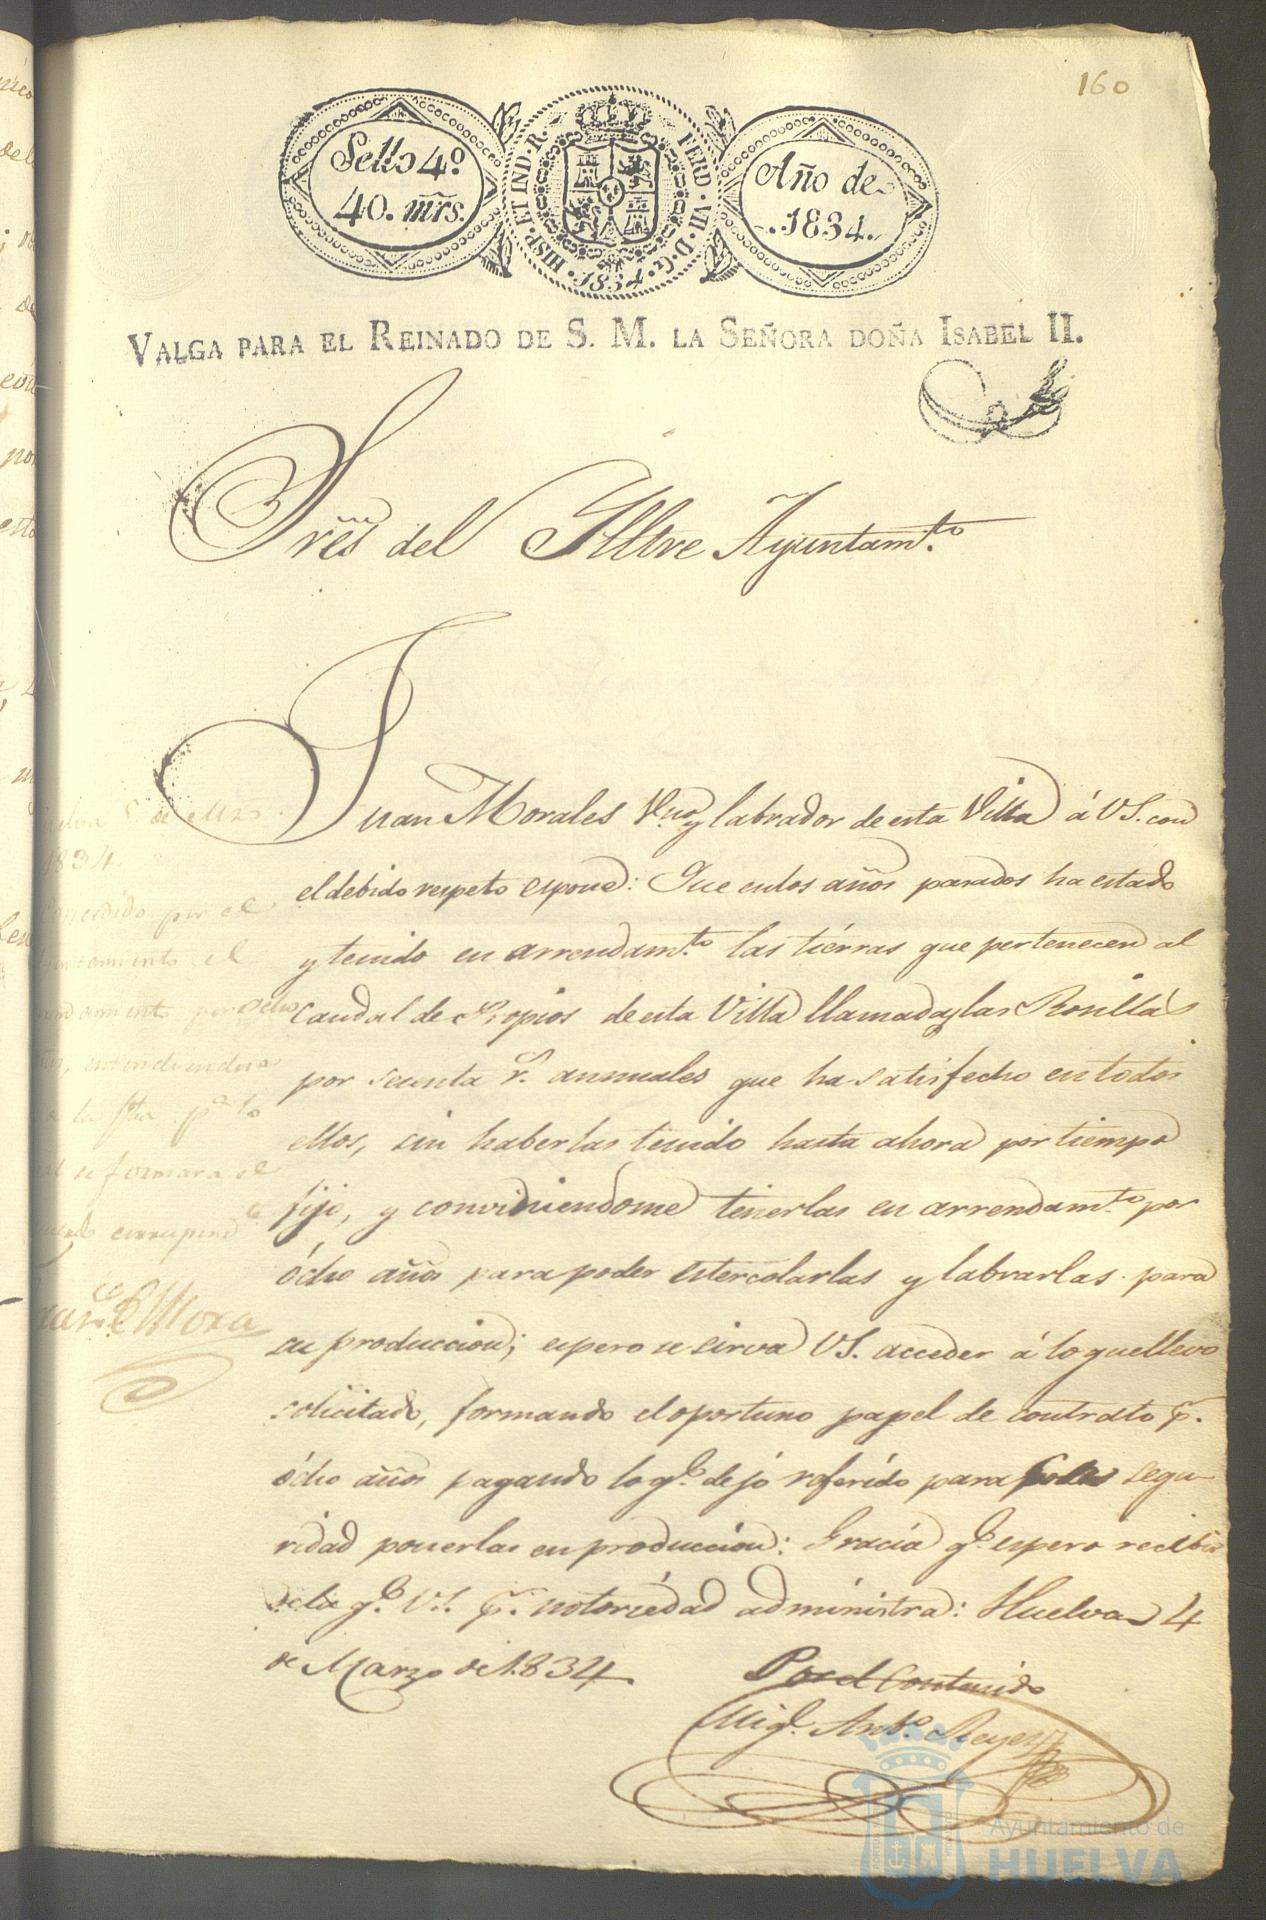 160
Sello 4.º
40. mrs.
HISP. ET IND. R. FERD. VII. D. G. 1834.
Año de
1834.
VALGA PARA EL REINADO DE S. M. LA SEÑORA DOÑA ISABEL II.
Sres del Illtre Ayuntamto
Juan Morales Vno y labrador de esta Villa á VS. con
el debido respeto espone: Que en los años pasados ha estado
y tenido en arrendamto las tiérras que pertenecen al
Caudal de Propios de esta Villa llamadas las
por sesenta rs. annuales que ha satisfecho en todos
ellos, sin haberlas tenido hasta ahora por tiempo
fijo, y conviniendome tenerlas en arrendamto por
ócho años para poder estercolarlas y labrarlas para
su produccion; espero se sirva VS. acceder á lo que llevo
solicitado, formando el oportuno papel de contrato pr.
ócho años pagando lo qe. dejo referido para seguridad
ponerlas en produccion: Gracia qe. espero recibir
qe. VS. pr. notoriedad administra: Huelva 4
de Marzo de 1834.
Por el Contenido
Migl. Anto. Reyes
5 de Mzo
1834.
Concedido por el
Ayuntamiento el
por ocho
entendiendose
pa lo
se formará el
Mora
Ayuntamiento de
HUELVA